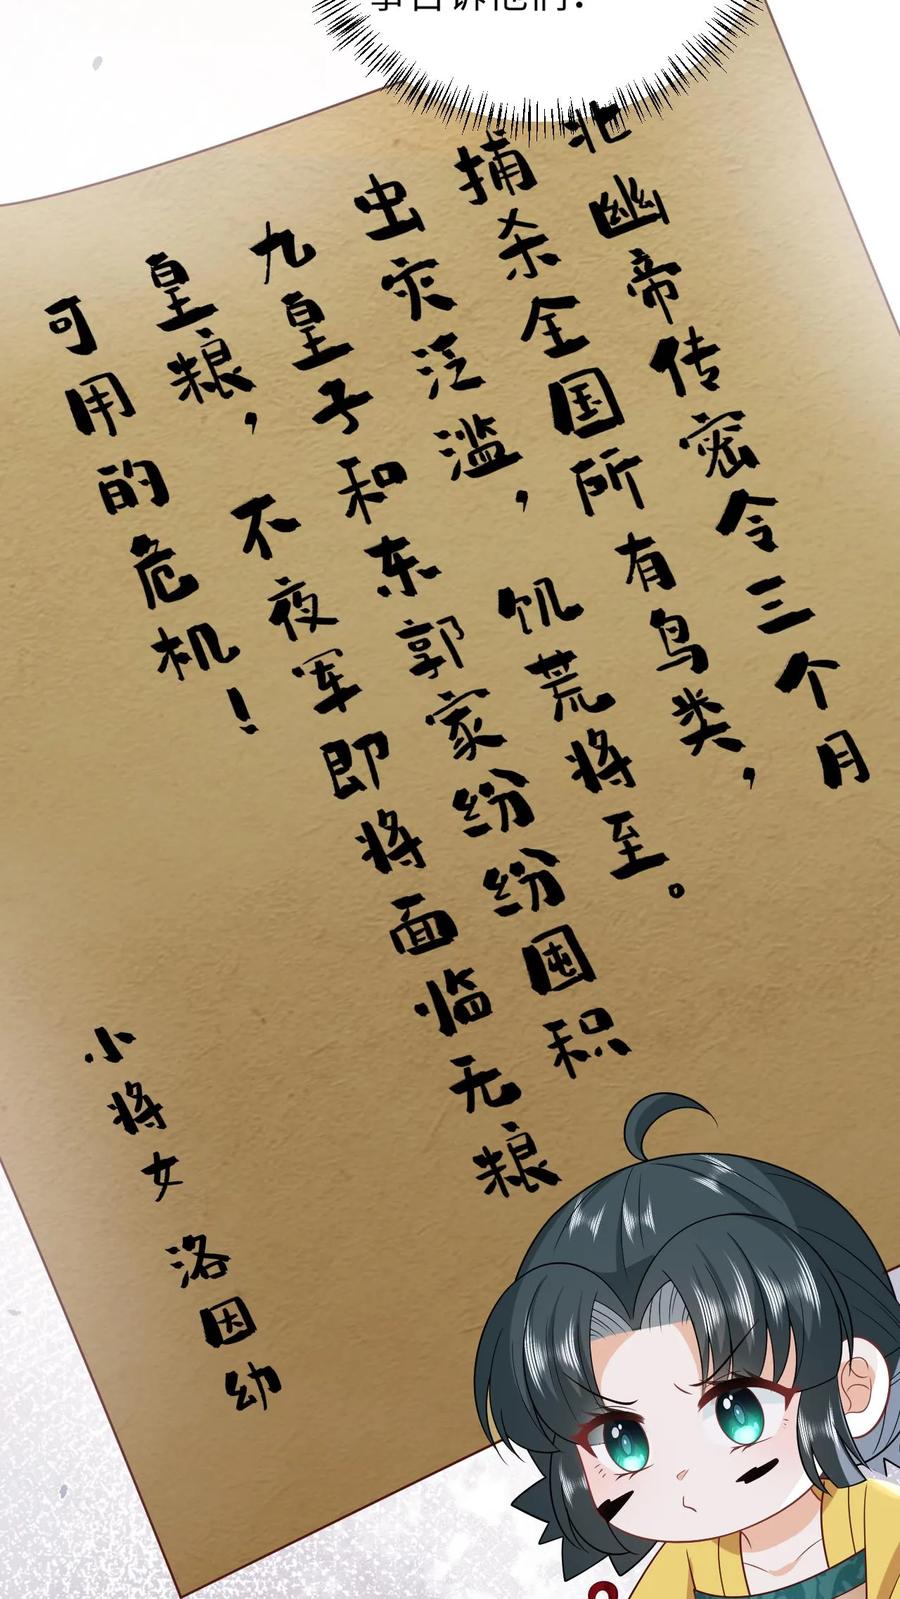 事告诉他们！
北幽帝传密令三个月
捕杀全国所有鸟类，
虫灾泛滥，饥荒将至。
九皇子和东郭家纷纷囤积
皇粮，不夜军即将面临无粮
可用的危机！
小将女 洛因幼